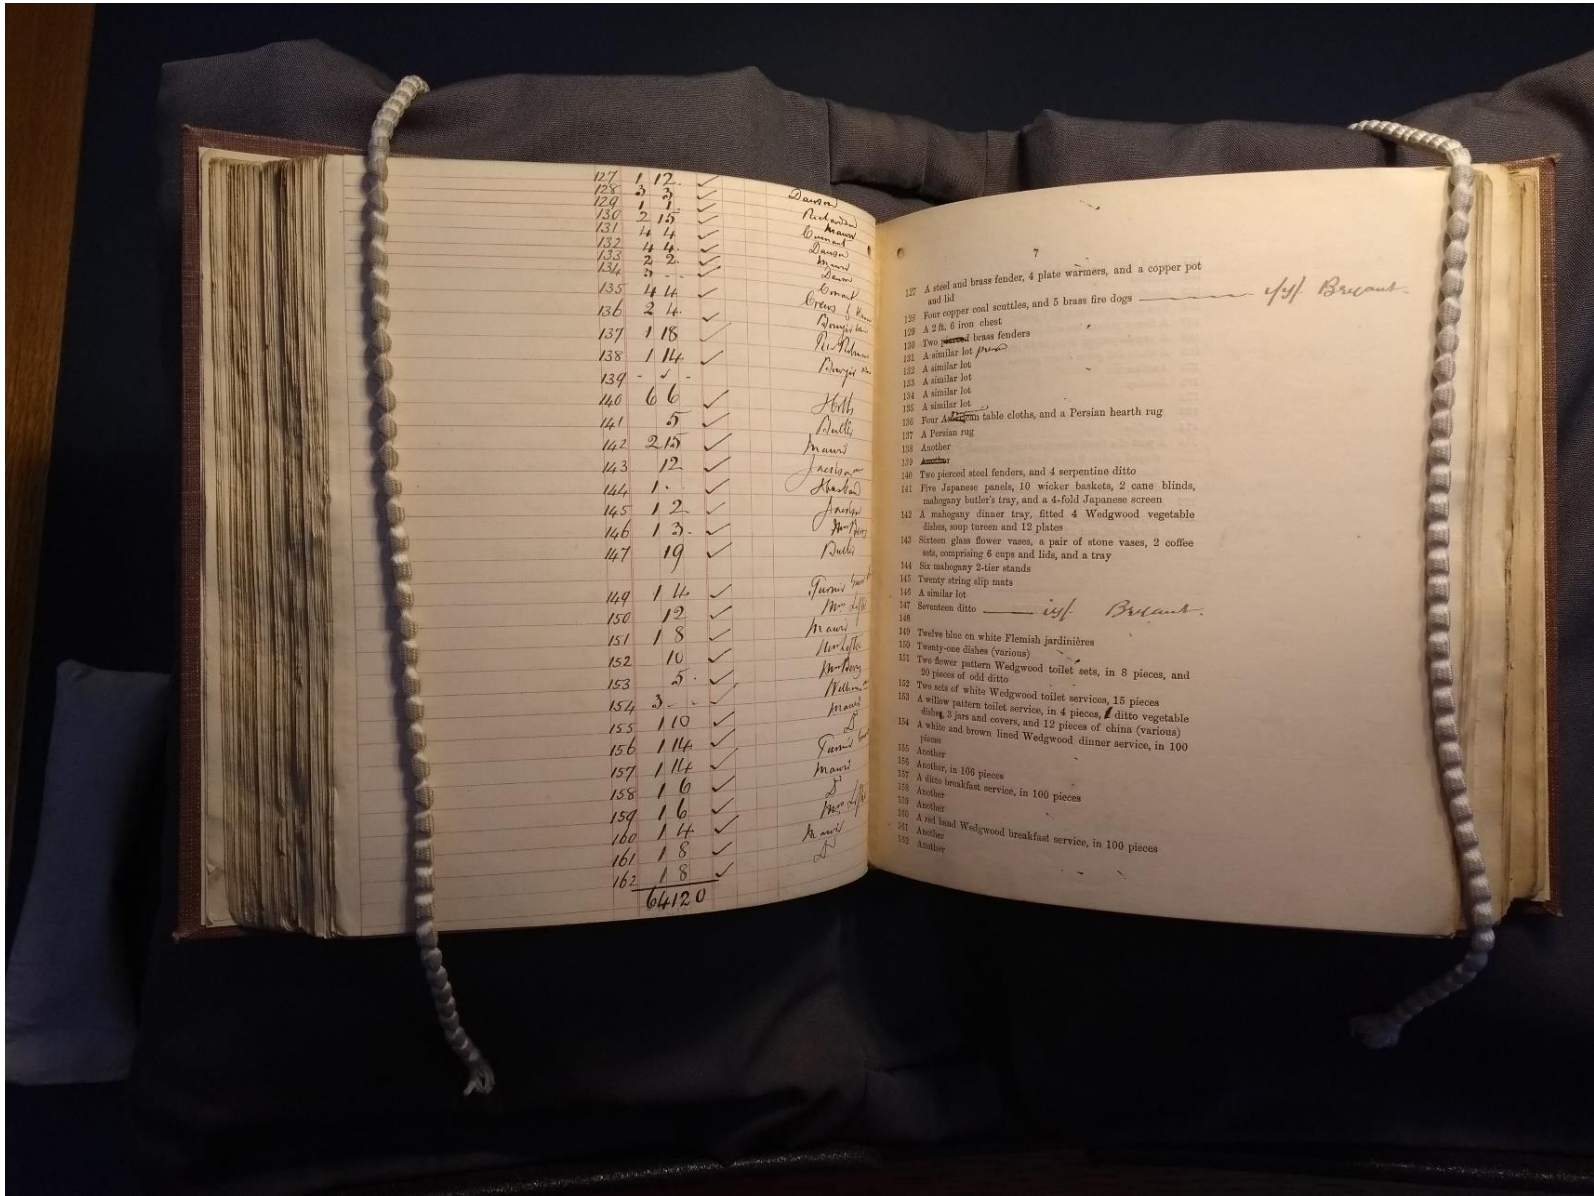 127 1 12. ✓
128 3 3 ✓ Dawson
129 1 1. ✓
130 2 15 ✓ Mawer
131 4 4 ✓
132 4 4. ✓ Dawson
133 2 2. ✓
134 3 - - ✓
135 4 4 ✓
136 2 4. ✓
137 1 18 ✓
138 1 14 ✓
139 - ✓ -
140 6 6 ✓
141 5 ✓ Butler
142 2 15 ✓
143 12 ✓ Jackson
144 1 . ✓
145 1 2 ✓
146 1 3. ✓ Mrs
147 19 ✓ Butler
149 1 4. ✓ Turner
150 12 ✓ Mrs
151 1 8 ✓
152 10 ✓
153 5. ✓
154 3 - . ✓
155 1 10 ✓
156 1 14 ✓ Turner
157 1 14 ✓
158 1 6 ✓
159 1 6 ✓ Mrs
160 1 4 ✓
161 1 8 ✓
162 1 8 ✓
64 12 0
7
127 A steel and brass fender, 4 plate warmers, and a copper pot
and lid
128 Four copper coal scuttles, and 5 brass fire dogs Bryant
129 A 2 ft. 6 iron chest
130 Two pierced brass fenders
131 A similar lot
132 A similar lot
133 A similar lot
134 A similar lot
135 A similar lot
136 Four table cloths, and a Persian hearth rug
137 A Persian rug
138 Another
139 Another
140 Two pierced steel fenders, and 4 serpentine ditto
141 Five Japanese panels, 10 wicker baskets, 2 cane blinds,
mahogany butler's tray, and a 4-fold Japanese screen
142 A mahogany dinner tray, fitted 4 Wedgwood vegetable
dishes, soup tureen and 12 plates
143 Sixteen glass flower vases, a pair of stone vases, 2 coffee
sets, comprising 6 cups and lids, and a tray
144 Six mahogany 2-tier stands
145 Twenty string slip mats
146 A similar lot
147 Seventeen ditto Bryant.
148
149 Twelve blue on white Flemish jardinières
150 Twenty-one dishes (various)
151 Two flower pattern Wedgwood toilet sets, in 8 pieces, and
20 pieces of odd ditto
152 Two sets of white Wedgwood toilet services, 15 pieces
153 A willow pattern toilet service, in 4 pieces, ditto vegetable
dishes, 3 jars and covers, and 12 pieces of china (various)
154 A white and brown lined Wedgwood dinner service, in 100
pieces
155 Another
156 Another, in 106 pieces
157 A ditto breakfast service, in 100 pieces
158 Another
159 Another
160 A red band Wedgwood breakfast service, in 100 pieces
161 Another
162 Another